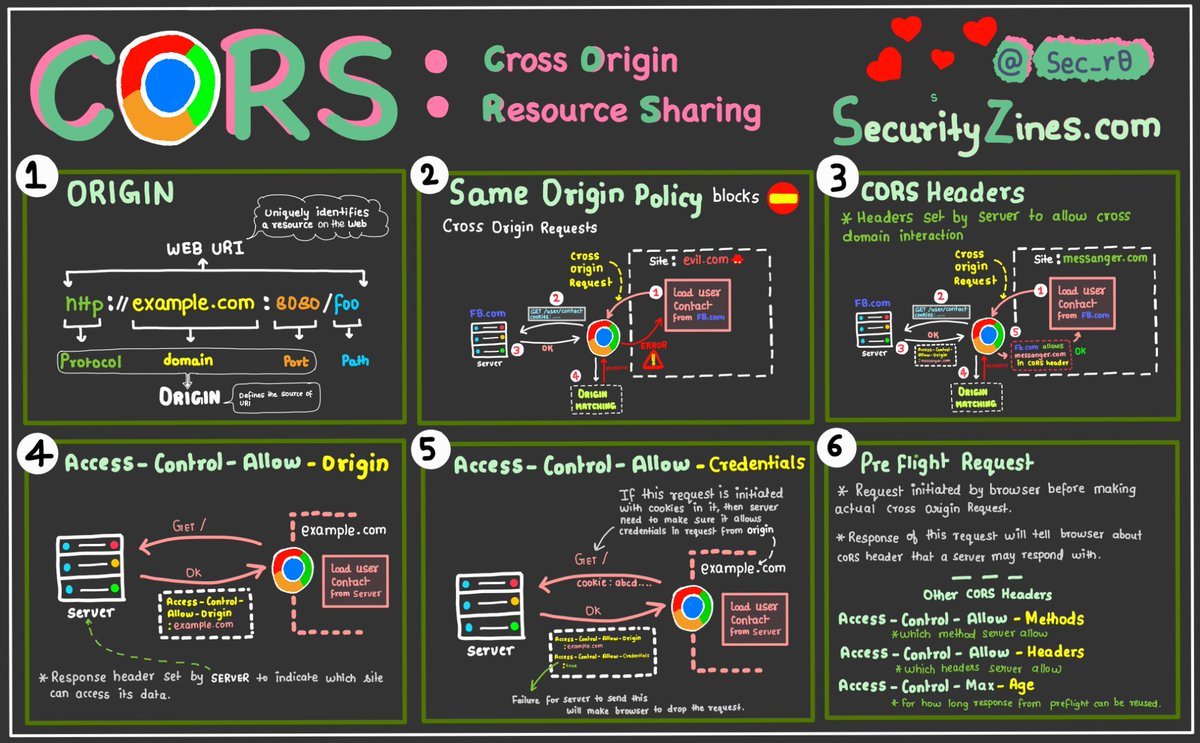 CORS : Cross Origin
Resource Sharing
@ Sec_r0
S
SecurityZines.com
1 ORIGIN
Uniquely identifies
a resource on the Web
WEB URI
http://example.com:8080/foo
Protocol domain Port Path
ORIGIN
Defines the source of
URI
2 Same Origin Policy blocks
Cross Origin Requests
Cross
origin
Request
Site: evil.com
1
Load user
Contact
from FB.com
2
GET /user/contact
cookies:....
FB.com
server
3
OK
ERROR
4
ORIGIN
MATCHING
3 CORS Headers
* Headers set by server to allow cross
domain interaction
Cross
origin
Request
Site: messanger.com
1
Load user
Contact
from FB.com
2
GET /user/contact
cookies:....
FB.com
server
3
OK
Access-Control-
Allow-Origin
:messanger.com
5
Fb.com allows
messanger.com
in CORS header
OK
4
ORIGIN
MATCHING
4 Access-Control-Allow-Origin
Get /
example.com
OK
Load user
Contact
from Server
server
Access-Control-
Allow-Origin
:example.com
* Response header set by SERVER to indicate which site
can access its data.
5 Access-Control-Allow-Credentials
If this request is initiated
with cookies in it, then server
need to make sure it allows
credentials in request from origin
Get /
cookie: abcd....
example.com
OK
Load user
Contact
from Server
Server
Access-Control-Allow-Origin
:example.com
Access-Control-Allow-Credentials
:true
Failure for server to send this
will make browser to drop the request.
6 Pre flight Request
* Request initiated by browser before making
actual Cross Origin Request.
* Response of this request will tell browser about
CORS header that a server may respond with.
Other CORS Headers
Access-Control-Allow-Methods
*which method server allow
Access-Control-Allow-Headers
*which headers server allow
Access-Control-Max-Age
*for how long response from preflight can be reused.